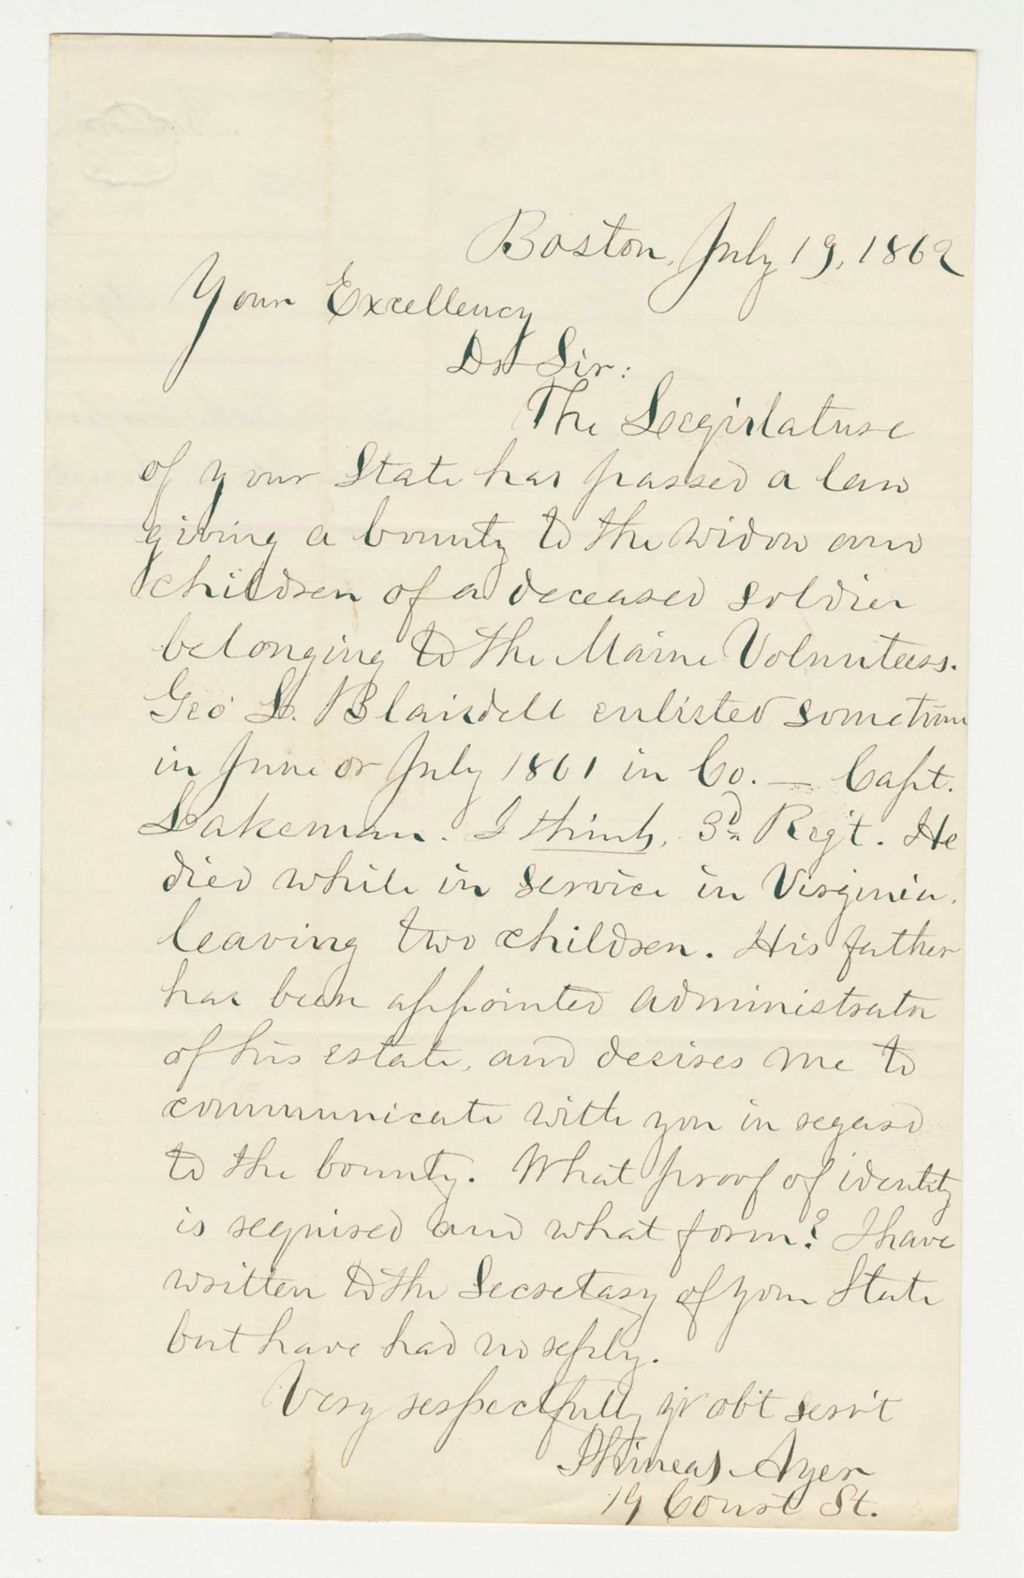 Boston, July 19, 1862
Your Excellency
Dr Sir:
The Legislature
of your State has passed a law
giving a bounty to the widow and
children of a deceased soldier
belonging to the Maine Volunteers.
Geo L. Blaisdell enlisted sometime
in June or July 1861 in Co. — Capt.
Lakeman. I think, 3d Reg't. He
died while in service in Virginia,
leaving two children. His father
has been appointed administrator
of his estate, and desires me to
communicate with you in regard
to the bounty. What proof of identity
is required and what form? I have
written to the Secretary of your State
but have had no reply.
Very respectfully yr obt serv't
Phineas Ayer
19 Court St.